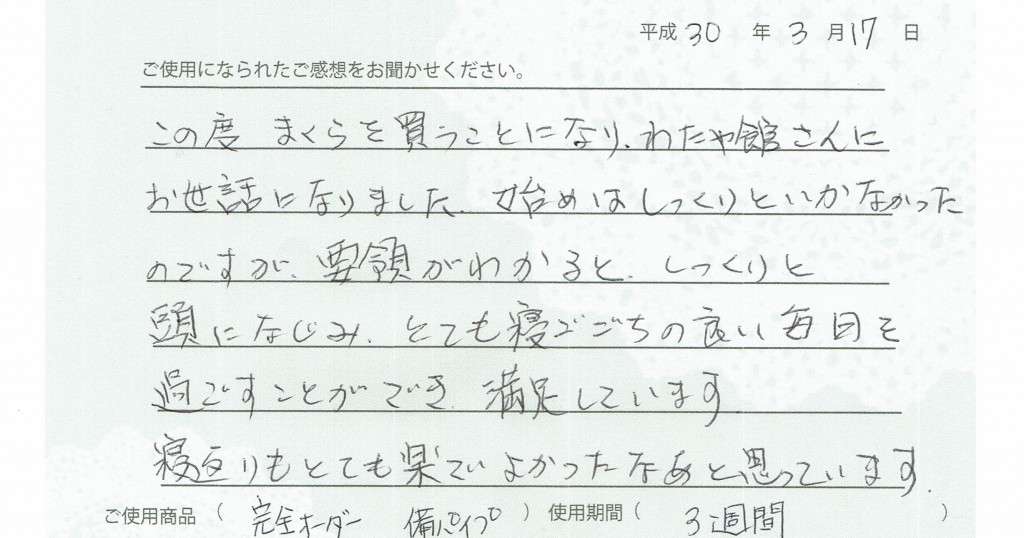 平成 30 年 3 月 17 日
ご使用になられたご感想をお聞かせください。
この度 まくらを買うことになり、わたや館さんに
お世話になりました。始めはしっくりといかなかった
のですが、要領がわかると、しっくりと
頭になじみ、とても寝ごごちの良い毎日を
過ごすことができ、満足しています。
寝返りもとても楽でいよかったなあと思っています。
ご使用商品 ( 完全オーダー 備パイプ ) 使用期間 ( 3週間 )